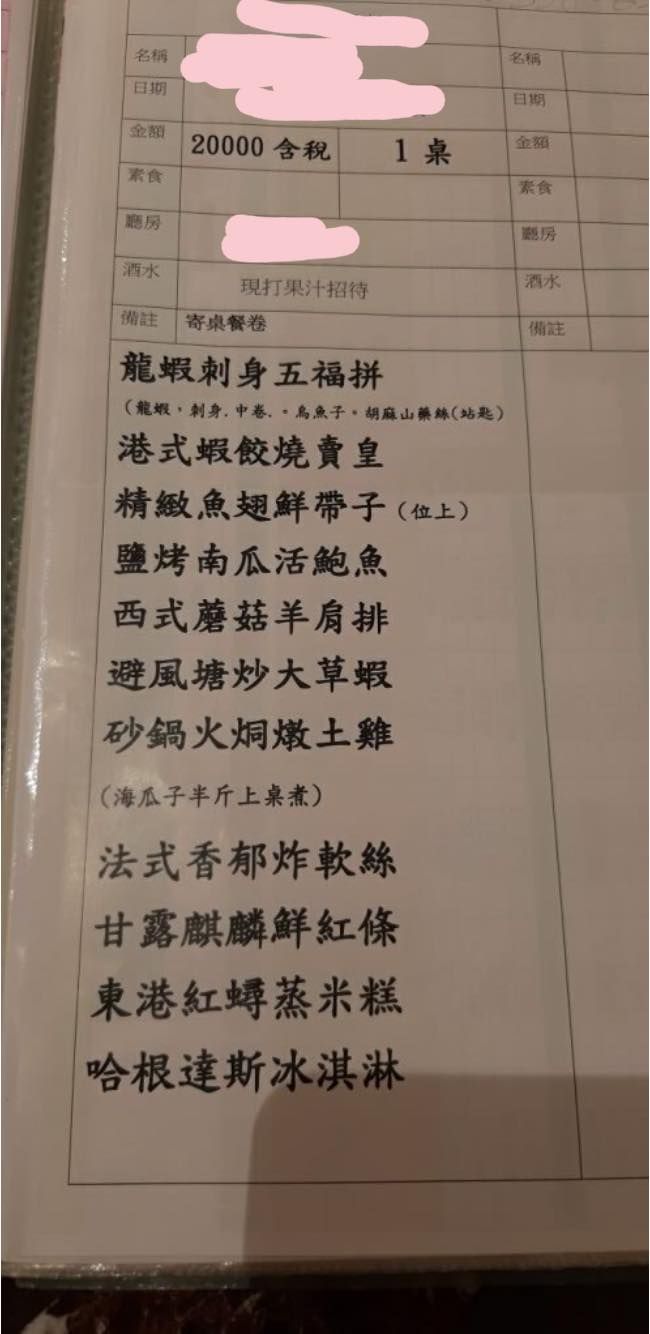 名稱
名稱
日期
日期
金額 20000 含稅 1 桌
金額
素食
素食
廳房
廳房
酒水 現打果汁招待
酒水
備註 寄桌餐卷
備註
龍蝦刺身五福拼
(龍蝦，刺身.中卷.。烏魚子。胡麻山藥絲(站匙)
港式蝦餃燒賣皇
精緻魚翅鮮帶子(位上)
鹽烤南瓜活鮑魚
西式蘑菇羊肩排
避風塘炒大草蝦
砂鍋火烔燉土雞
(海瓜子半斤上桌煮)
法式香郁炸軟絲
甘露麒麟鮮紅條
東港紅蟳蒸米糕
哈根達斯冰淇淋